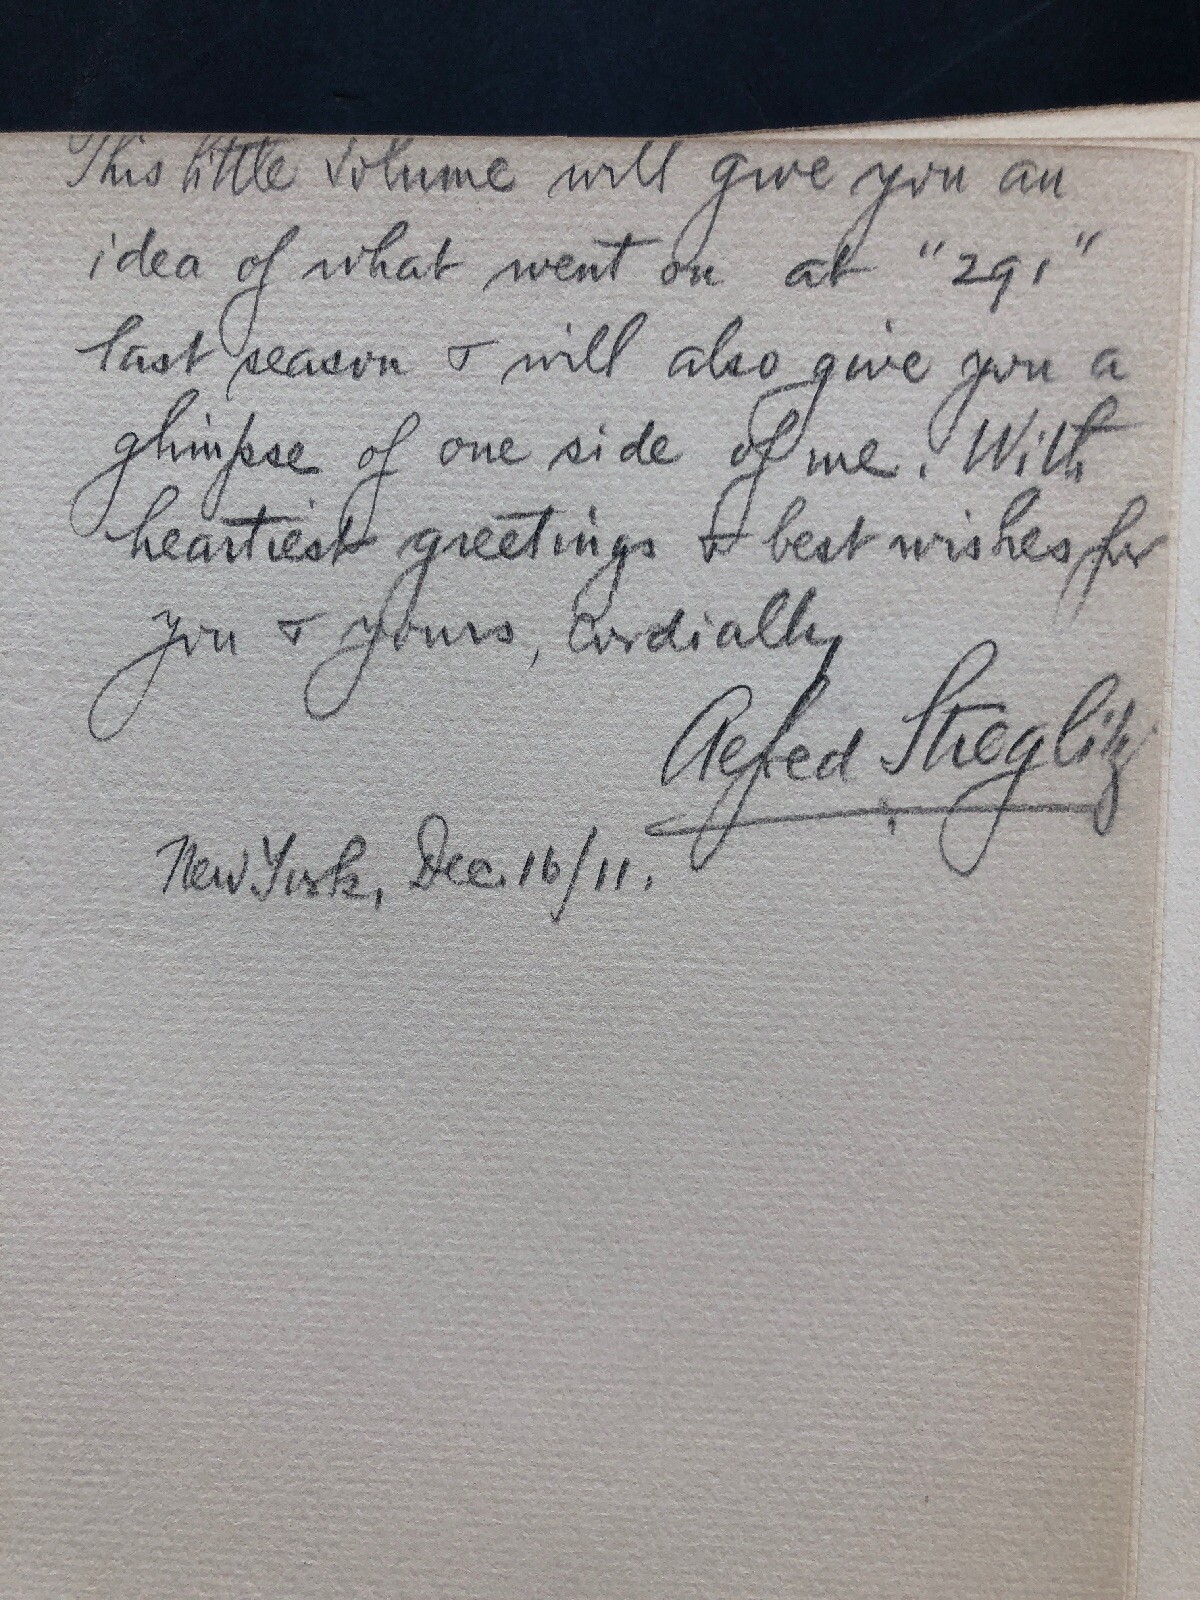 This little volume will give you an
idea of what went on at "291"
last season & will also give you a
glimpse of one side of me. With
heartiest greetings & best wishes for
you & yours, Cordially
Alfred Stieglitz
New York, Dec. 16/11.